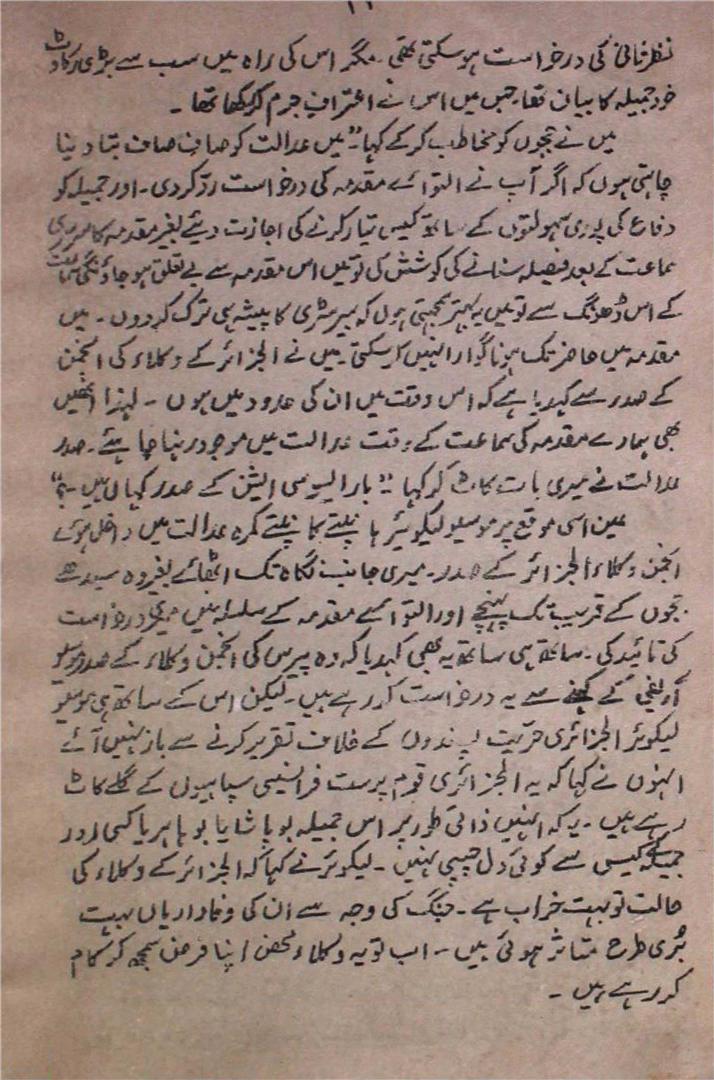 ۱۱
نظر ثانی کی درخواست ہو سکتی تھی۔ مگر اس کی راہ میں سب سے بڑی رکاوٹ
خود جمیلہ کا بیان تھا، جس میں اس نے اعترافِ جرم کر رکھا تھا۔
میں نے ججوں کو مخاطب کر کے کہا ”میں عدالت کو صاف صاف بتا دینا
چاہتی ہوں کہ اگر آپ نے التوائے مقدمہ کی درخواست رد کر دی۔ اور جمیلہ کو
دفاع کی پوری سہولتوں کے ساتھ کیس تیار کرنے کی اجازت دیئے بغیر مقدمہ کا سرسری
سماعت کے بعد فیصلہ سنانے کی کوشش کی تو میں اس مقدمہ سے بے تعلق ہو جاؤنگی سماعت
کے اس ڈھنگ سے تو میں یہ بہتر سمجھتی ہوں کہ بیرسٹری کا پیشہ ہی ترک کر دوں۔ میں
مقدمہ میں حاضر تک ہونا گوارا نہیں کر سکتی۔ میں نے الجزائر کے وکلاء کی انجمن
کے صدر سے کہدیا ہے کہ اس وقت میں ان کی حدود میں ہوں۔ لہذا انھیں
بھی ہمارے مقدمہ کی سماعت کے وقت عدالت میں موجود رہنا چاہئے۔ صدر
عدالت نے میری بات کاٹ کر کہا ”بار ایسوسی ایشن کے صدر کہاں ہیں۔؟“
عین اسی موقع پر موسیو لیکوئیر ہانپتے کانپتے کمرہ عدالت میں داخل ہوئے
انجمن وکلاء الجزائر کے صدر۔ میری جانب نگاہ تک اٹھائے بغیر وہ سیدھے
ججوں کے قریب تک پہنچے اور التوائے مقدمہ کے سلسلہ میں میری درخواست
کی تائید کی۔ ساتھ ہی ساتھ یہ بھی کہدیا کہ وہ پیرس کی انجمن وکلاء کے صدر موسیو
کے کہنے سے یہ درخواست کر رہے ہیں۔ لیکن اس کے ساتھ ہی موسیو
لیکوئر الجزائری حریت پسندوں کے خلاف تقریر کرنے سے باز نہیں آئے
انہوں نے کہا کہ یہ الجزائری قوم پرست فرانسیسی سپاہیوں کے گلے کاٹ
رہے ہیں۔ یہ کہ انہیں ذاتی طور پر اس جمیلہ بوپاشا یا بوباہر یا کسی اور
جمیلہ کے کیس سے کوئی دل چسپی نہیں۔ لیکوئر نے کہا کہ الجزائر کے وکلاء کی
حالت تو بہت خراب ہے۔ جنگ کی وجہ سے ان کی وفاداریاں بہت
بُری طرح متاثر ہوئی ہیں۔ اب تو یہ وکلاء محض اپنا فرض سمجھ کر کام
کر رہے ہیں۔